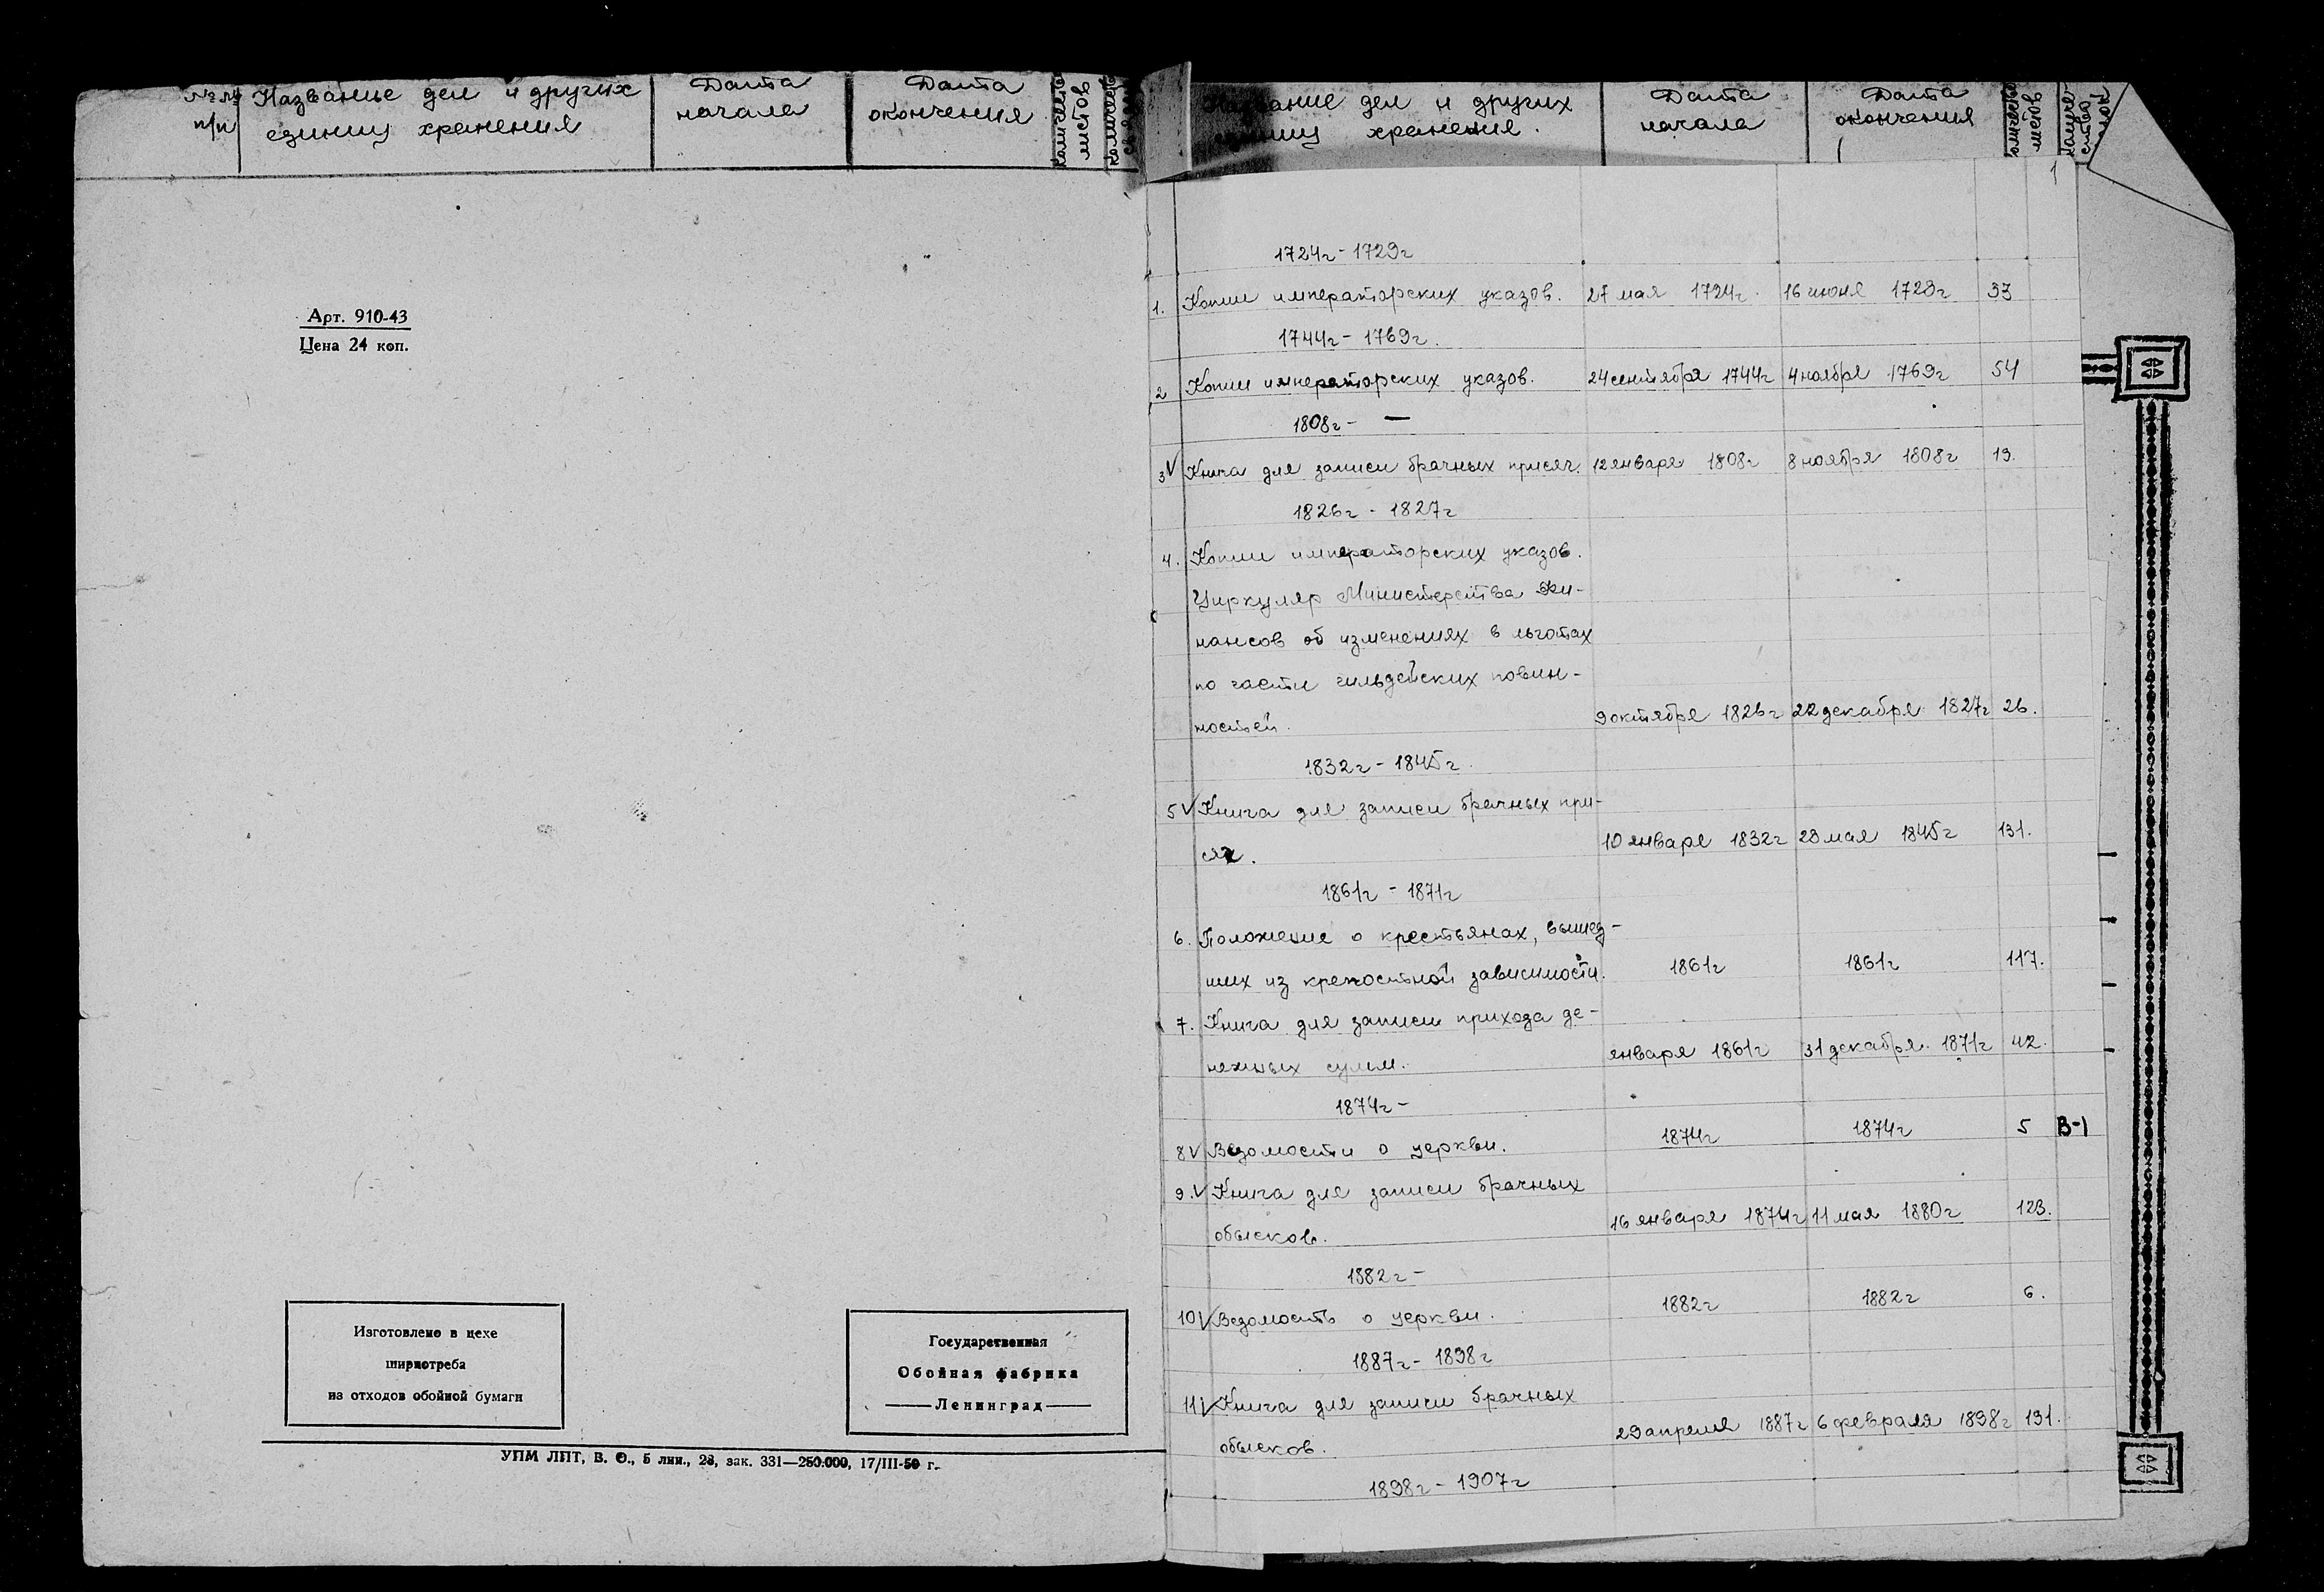 №№ Название дел и других Дата Дата Количество листов Количество
п/п единиц хранения начала окончания
Арт. 910-43
Цена 24 коп.
Изготовлено в цехе
ширпотреба
из отходов обойной бумаги
Государственная
Обойная фабрика
Ленинград
УПМ ЛПТ, В. О., 5 лин., 28, зак. 331—250.000, 17/III-50 г.
Название дел и других Дата Дата Количество листов
единиц хранения. начала окончания
1
1724г - 1729г
1. Копии императорских указов. 27 мая 1724г. 16 июня 1729г 33
1744г - 1769г.
2 Копии императорских указов. 24 сентября 1744г 4 ноября 1769г 54
1808г - —
3V Книга для записи брачных присяг. 12 января 1808г 8 ноября 1808г 19.
1826г - 1827г
4. Копии императорских указов.
Циркуляр Министерства Фи-
нансов об изменениях в льготах
по части гильдейских повин-
ностей. 9 октября 1826г 22 декабря 1827г 26.
1832г - 1845г.
5V Книга для записи брачных при-
сяг. 10 января 1832г 23 мая 1845г 131.
1861г - 1871г
6. Положение о крестьянах, вышед-
ших из крепостной зависимости. 1861г 1861г 117.
7. Книга для записи прихода де-
нежных сумм. января 1861г 31 декабря 1871г 42.
1874г -
8V Ведомости о церкви. 1874г 1874г 5 В-1
9.V Книга для записи брачных
обысков. 16 января 1874г 11 мая 1880г 123.
1882г -
10V Ведомость о церкви. 1882г 1882г 6.
1887г - 1898г
11V Книга для записи брачных
обысков. 29 апреля 1887г 6 февраля 1898г 191.
1898г - 1907г